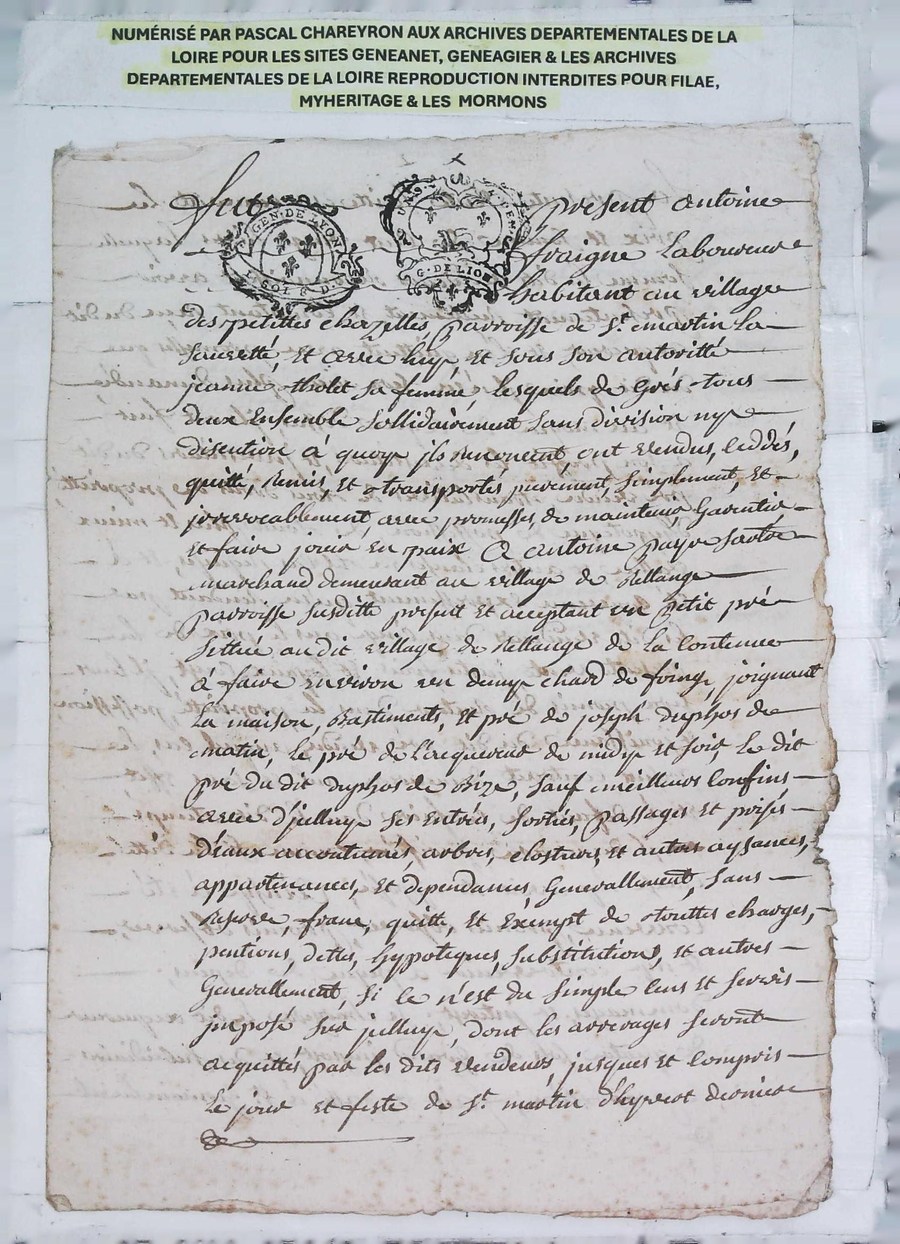 NUMÉRISÉ PAR PASCAL CHAREYRON AUX ARCHIVES DEPARTEMENTALES DE LA
LOIRE POUR LES SITES GENEANET, GENEAGIER & LES ARCHIVES
DEPARTEMENTALES DE LA LOIRE REPRODUCTION INTERDITES POUR FILAE,
MYHERITAGE & LES MORMONS
fut present antoine
GEN. DE LYON
G. DE LION
fraigne Laboureur
habitant au village
des petittes chazelles, parroisse de St martin la
sauveté, et avec luy, et sous son autoritté
jeanne tholet sa femme lesquels de grés tous
deux Ensemble sollidairement sans division ny
discution à quoy ils renoncent ont vendus, ceddés,
quitté, remis, et transportés purement, simplement, et
jrrevocablement, avec promesses de maintenir, Garentir
et faire jouir en paix a antoine
marchand demeurant au village de Rellange
parroisse susditte present et acceptant un petit pré
sittué au dit village de Rellange de la contenue
à faire environ un demy chard de foing, joignant
la maison, Bastiments, et pré de joseph duphos de
matin, le pré de l'acquereur de midy et soir, le dit
pré du dit duphos de Bize, sauf meilleurs confins
avec d'jcelluy ses entrés, sorties, passages et prises
d'eaux accoutumés, arbres, clostures, et autres aysances,
appartenances, et dependances Generallement, sans
reserve, franc, quitte, et exempt de touttes charges,
pentions, dettes, hypoteques, substitutions, et autres
Generallement, si ce n'est du simple cens et servis
jmposé sur jcelluy, dont les arrerages seront
acquittés par les dits vendeurs, jusques et compris
le jour et feste de St martin d'hyvert dernier